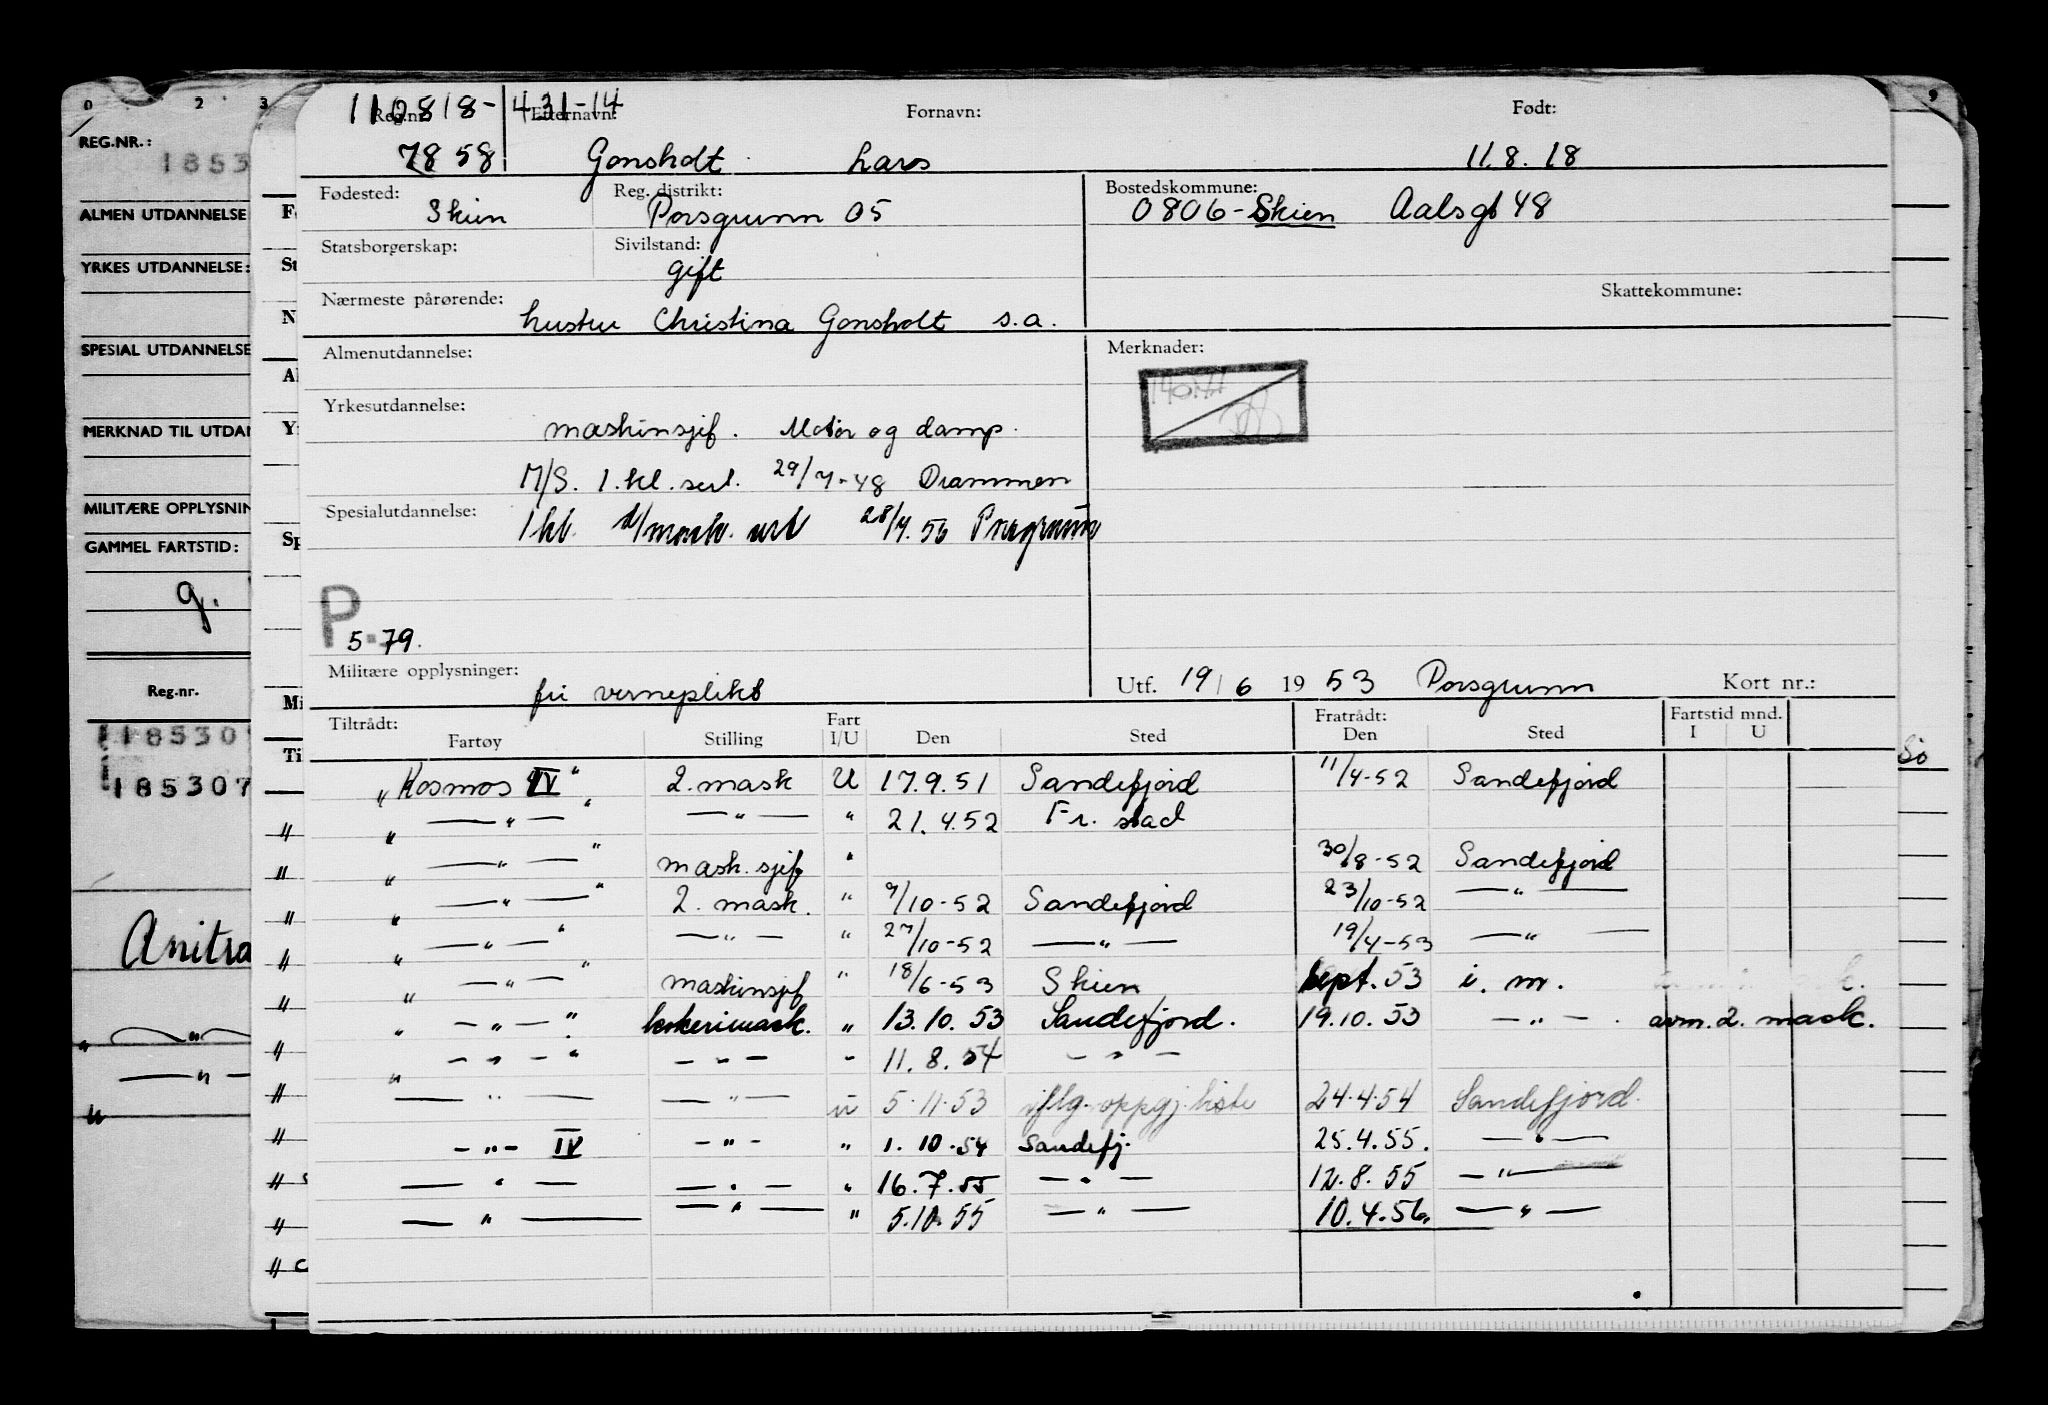 0 2 3 9
REG.NR.:
1853
ALMEN UTDANNELSE
YRKES UTDANNELSE:
SPESIAL UTDANNELSE
MERKNAD TIL UTDAN
MILITÆRE OPPLYSNIN
GAMMEL FARTSTID:
g.
Reg.nr.
185307
185307
Anitra
110818- 431-14
Reg.nr. Etternavn: Fornavn: Født:
7858 Gonsholt Lars 11.8.18
Fødested: Reg. distrikt: Bostedskommune:
Skien Porsgrunn 05 0806-Skien Aalsgt 48
Statsborgerskap: Sivilstand:
gift
Nærmeste pårørende: Skattekommune:
hustru Christina Gonsholt s.a.
Almenutdannelse: Merknader:
Yrkesutdannelse:
maskinsjef. Motor og damp.
M/S. 1.kl. sert. 29/7-48 Drammen
Spesialutdannelse:
1 kl. d/mask. sert 28/4.53 Porsgrunn
P
5-79.
Militære opplysninger:
fri verneplikt
Utf. 19/6 1953 Porsgrunn Kort nr.:
Tiltrådt: Fart Fratrådt: Fartstid mnd.
Fartøy Stilling I/U Den Sted Den Sted I U
"Kosmos IV" 2. mask U 17.9.51 Sandefjord 11/4-52 Sandefjord
" —"— " —"— " 21.4.52 Fr. stad
" —"— " mask. sjef " 30/8-52 Sandefjord
" —"— " 2. mask. " 9/10-52 Sandefjord 23/10-52 —"—
" —"— " —"— " 27/10-52 —"— 19/4-53 —"—
" —"— " maskinsjef " 18/6-53 Skien sept. 53 i. m.
" —"— " kokerimask. " 13.10.53 Sandefjord. 19.10.53 —"— . avm. 2. mask.
" —"— " —"— " 11.8.54 —"—
—"— —"— U 5.11.53 iflg. oppgj. liste 24.4.54 Sandefjord.
—"— IV —"— " 1.10.54 Sandefj. 25.4.55. —"—
—"— —"— " 16.7.55 —"— 12.8.55 —"—
—"— —"— " 5.10.55 —"— 10.4.56. —"—